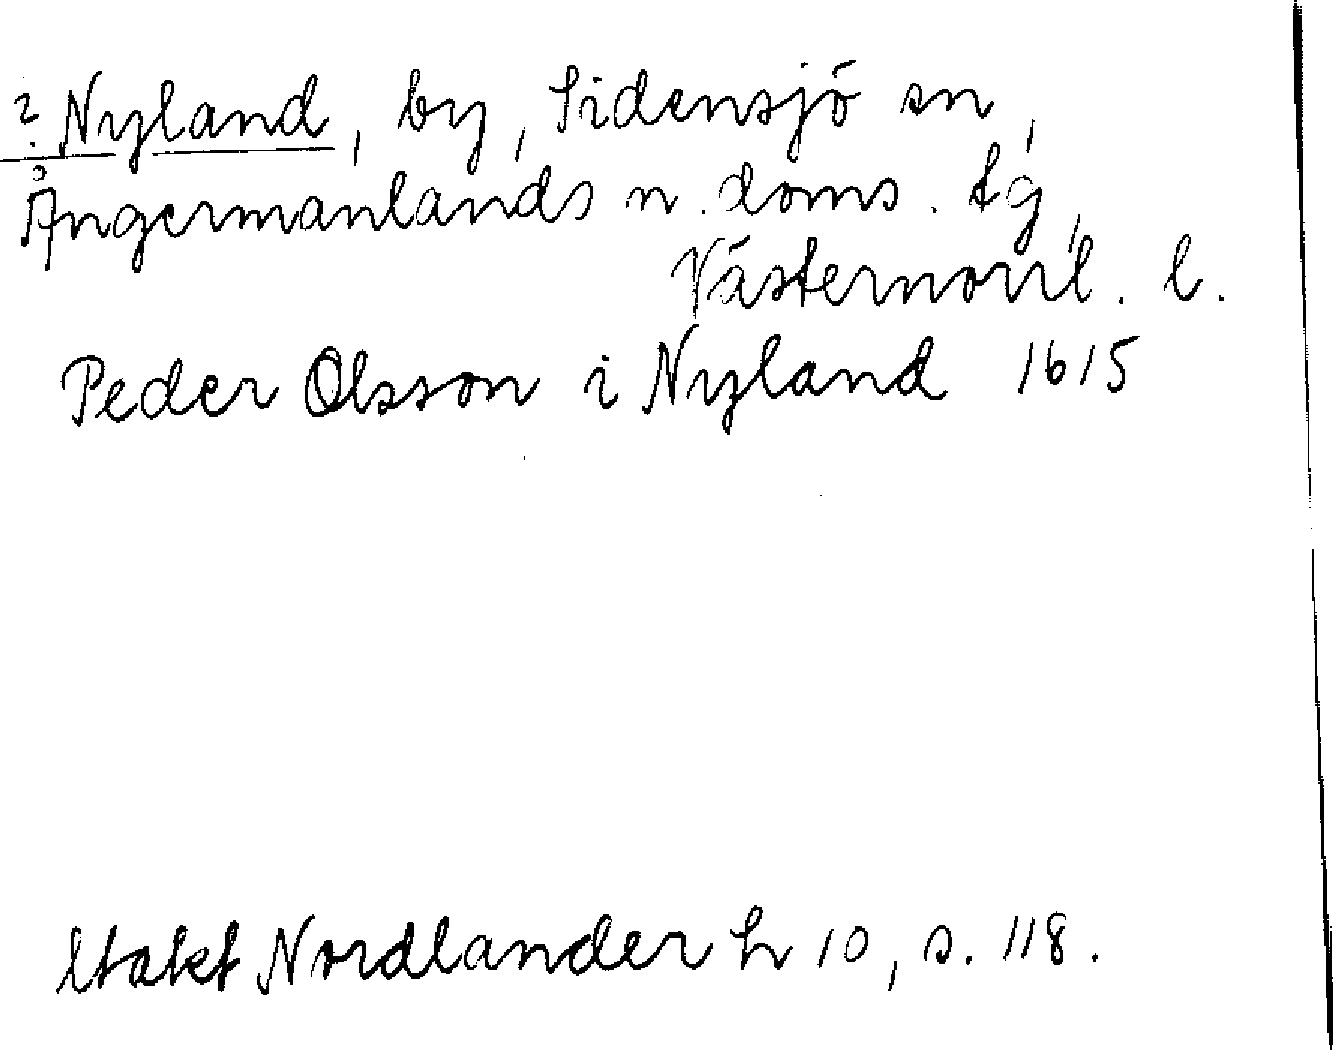 ? Nyland, by, Sidensjö sn,
Ångermanlands n. doms. tg,
Västernorrl. l.
Peder Olsson i Nyland 1615
Utakt Nordlander h 10, s. 118.